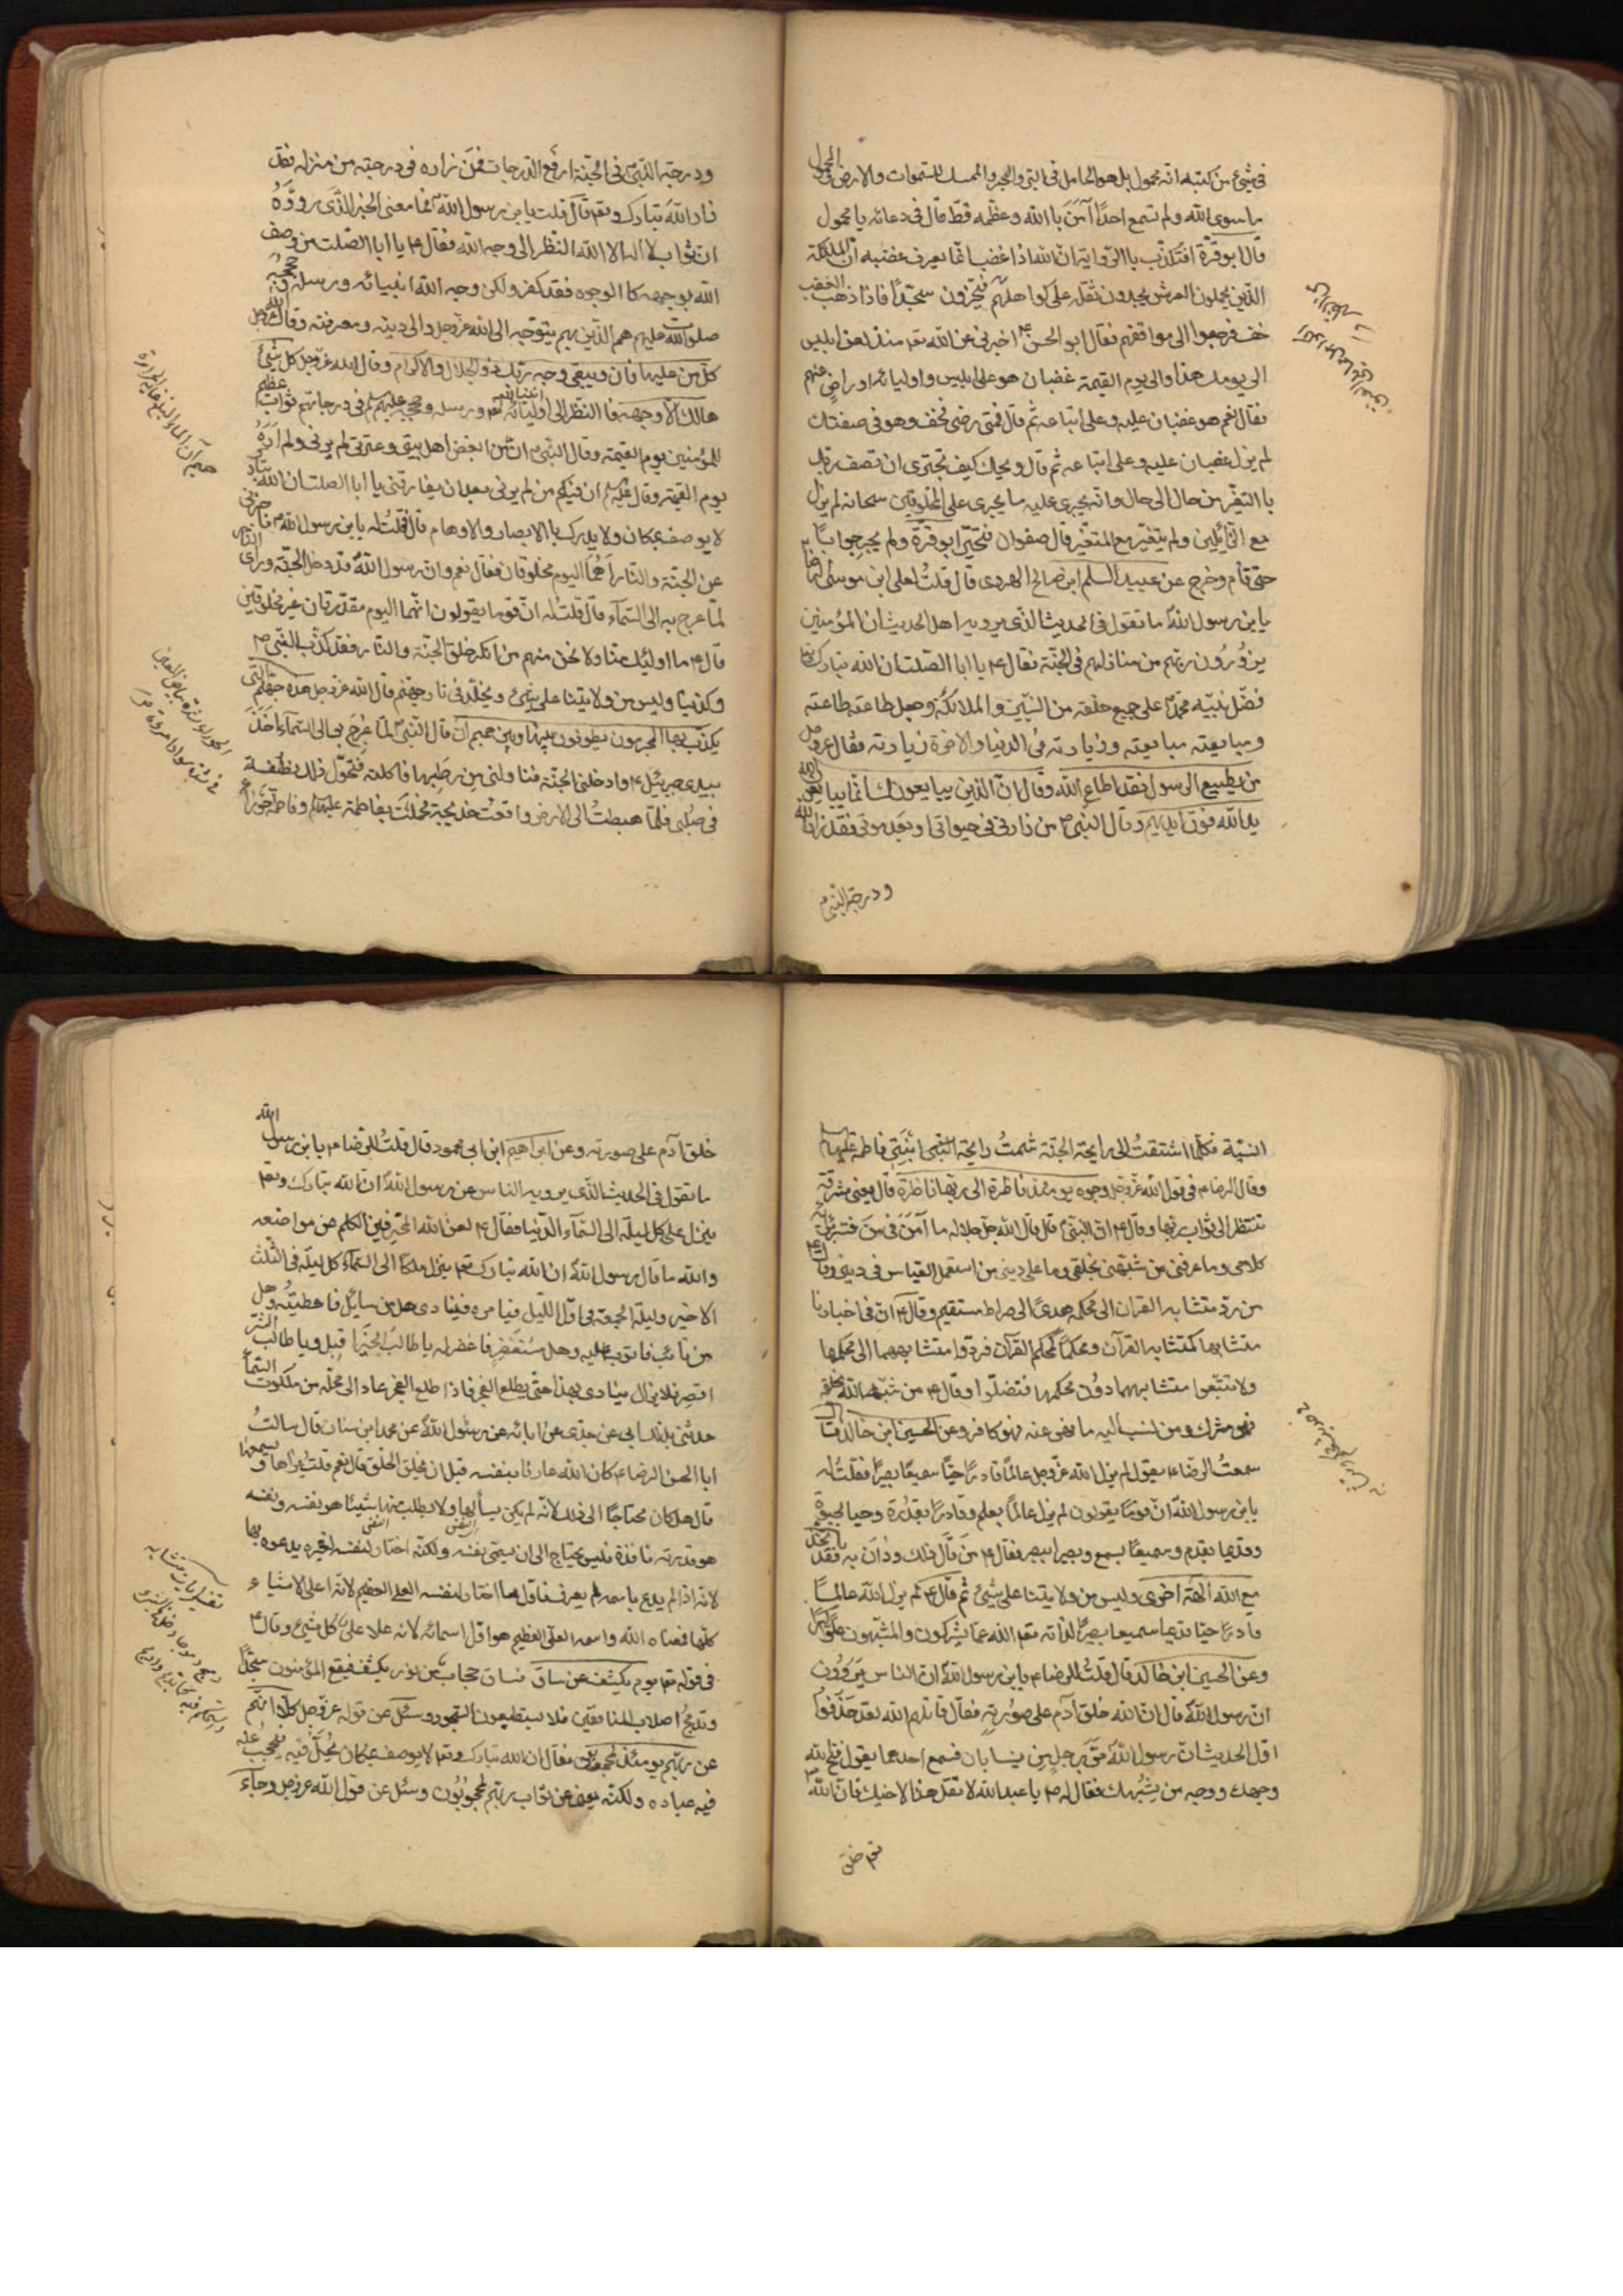 في شيء من كتبه انه محمول بل هو الحامل في البر والبحر والممسك للسموات والارض والمحمول
ما سوى الله ولم نسمع احدًا آمَنَ باالله وعظّمه قطّ قال في دعائه يا محمول
قال ابو قرّة افتكذّب باالرّواية انّ الله اذا غضب انّما يعرف غضبه انّ الملئكة
الذّين يحملون العرش يجدون ثقله على كواهلهم فيخرّون سجّدًا فاذا ذهب الغضب
خف فرجعوا الى مواقفهم فقال ابو الحسن ع اخبرني عن الله تع منذ لعن ابليس
الى يومك هذا والى يوم القيمة غضبان هو على ابليس واوليائه او راضٍ عنهم
فقال نعم هو غضبان عليه وعلى اتباعه ثم قال فمتى رضي فخفّ وهو في صفتك
لم يزل غضبان عليه وعلى اتباعه ثم قال ويحك كيف تجترى ان تصف ربّك
باالتغيّر من حال الى حال وانّه يجرى عليه ما يجرى على المخلوقين سبحانه لم يزل
مع الزّائلين ولم يتغيّر مع المتغيّر قال صفوان فتحيّر ابو قرّة ولم يحر جوابًا
حتّى قام وخرج عن عبيد السلم ابن صالح الهروى قال قلتُ لعلى ابن موسى الرضا ع
يا بن رسول الله ما تقول في الحديث الذّى يرويه اهل الحديث ان المؤمنين
يزُورُون ربّهم من منازلهم في الجنّة فقال ع يا ابا الصّلت ان الله تبارك وتع
فضّل نبيّه محمّدًا على جميع خلقه من النّبيّين والملائكة وجعل طاعته طاعته
ومبايعته مبايعته وزيارته في الدنيا والاخرة زيارته فقال عز وجل
من يطيع الرسول فقد اطاع الله وقال انّ الذّين يبايعونك انّما يبايعون الله
يد الله فوق ايديهم وقال النبي ص من زارني في حيواتي او بعد موتي فقد زار الله
ودرجة النّبي ص
ودرجة النّبيّ في الجنّة ارفع الدّرجات فمَنْ زاره في درجته من منزله فقد
زار اللهَ تبارك وتع قال قلت يا بن رسول الله فما معنى الخبر الذّى روَوْهُ
ان ثواب لا اله الا الله النظر الى وجه الله فقال ع يا ابا الصّلت من وصف
الله بوجه كا الوجوه فقد كفر ولكن وجه الله انبيائه ورسله وحججه
صلوات الله عليهم هم الذّين بهم يتوجّه الى الله عزّ وجل والى دينه ومعرفته وقال الله عز وجل
كلّ من عليها فان ويبقى وجه ربّك ذو الجلال والاكرام وقال الله عزّ وجل كل شئ
هالك الّا وجهه فا النّظر الى انبياء الله ورسله وحججه عليهم السلم في درجاتهم ثواب عظيم
للمؤمنين يوم القيمة وقال النّبي ص من ابغض اهل بيتي وعترتي لم يرنى ولم ارَهُ
يوم القيمة وقال عليه السلم انّ فيكم من لم يرنى بعد ان يفارقنى يا ابا الصلت ان الله تبارك
لا يوصف بمكان ولا يدرك باالابصار والاوهام قال قلتُ له يا بن رسول الله فاخبرني
عن الجنّة والنّار أهُما اليوم مخلوقتان فقال نعم وان رسول الله قد دخل الجنّة وراى النار
لمّا عرج به الى السّمآء قال قلتُ له انّ قوما يقولون انّهما اليوم مقدّرتان غير مخلوقتين
قال ع ما اوليئك منّا ولا نحن منهم من انكر خلق الجنّة والنّار فقد كذّب النّبي ص
وكذّبنا وليس من ولايتنا على شئ ويخلّد في نار جهنّم قال الله عزّ وجل هذه جهنّم التّى
يكذّب بها المجرمون يطوفون بينها وبين حميم آن قال النّبيّ لمّا عُرِجَ بي الى السّمآء اخذ
بيدى جبرئيل ع وادخلني الجنّة فناولنى من رطبها فاكلته فتحوّل ذلك نطفة
في صُلبى فلمّا هبطتُ الى الارض واقعتُ خديجة فحملت بفاطمة عليها السلم وفاطمة حوراء
حميم آن الماء البالغ غاية الحرارة
الحور شدة بياض العين
في شدة سوادها
انسيّة فكلّما اشتقتُ الى رايحة الجنّة شممتُ رايحة ابنتى فاطمة عليها السلم
وقال الرضا ع في قول الله عزّ وجل وجوه يومئذ ناظرة الى ربّها ناظرة قال يعنى مشرقة
تنتظر الى ثواب ربّها وقال ع انّ النّبيّ قال قال الله جلّ جلاله ما آمَنَ بي مَن فسّر برأيه
كلامى وما عرفنى من شبّهنى بخلقى وما على دينى من استعمل القياس في دينى وقال ع
من ردّ متشابه القران الى محكمه هدى الى صراط مستقيم وقال ع انّ في اخبارنا
متشابها كمتشابه القرآن ومحكمًا كمحكم القرآن فردّوا متشابهها الى محكمها
ولا تتبّعوا متشابهها دوُن محكمها فتضلّوا وقال ع من شبّه الله بخلقه
فهو مشرك ومن نسب اليه ما نهى عنه فهو كافر وعن الحسين ابن خالد قال
سمعتُ الرّضا ع يقول لم يزل الله عزّ وجل عالمًا قادرًا حيًّا سميعًا بصيرًا فقلتُ له
يا بن رسول الله انّ قومًا يقولون لم يزل عالمًا بعلم وقادرًا بقدُرة وحيا بحيوة
وقديما بقدم وسميعًا بسمع وبصيرا ببصر فقال ع مَن قالَ ذلك ودَانَ به فقد اتّخذ
مع الله الهةً اخرى وليس من ولايتنا على شئ ثم قال ع لم يزل الله عالمًا
قادرًا حيًّا قديما سميعا بصيرًا لذاته تع الله عمّا يشركون والمشبّهون علوًّا كبيرًا
وعن الحسين ابن خالد قال قلتُ للرضا ع يا بن رسول الله انّ الناس يَروَوُن
انّ رسول الله قال انّ الله خلق آدم على صوُرته فقال قاتلهم الله لقد حَذَفُوا
اوّل الحديث انّ رسول الله مَرَّ برجلين يتسابّان فسمع احدهما يقول قبّح الله
وجهك ووجه من يشبُهك فقال له ص يا عبد الله لا تقل هذا لاخيك فانّ الله
تع خلق
خلق آدم على صورته وعن ابراهيم ابن ابى محمود قال قلتُ للرضا ع يا بن رسول الله
ما تقول في الحديث الذّى يرويه الناس عن رسول الله انّ الله تبارك وتع
ينزل على كل ليلة الى السّمآء الدّنيا فقال ع لعن الله المحرّفين الكلم عن مواضعه
والله ما قال رسول الله انّ الله تبارك تع ينزل ملكًا الى السّمآء كل ليلة في الثّلث
الاخير وليلة الجمعة في اوّل اللّيل فيامره فينادى هل من سايل فاعطيه وهل
من تائب فاتوب عليه وهل مستغفر فاغفر له يا طالب الخير اقبل ويا طالب الشّر
اقصر فلا يزال ينادى بهذا حتّى يطلع الفجر فاذا طلع الفجر عاد الى محلّه من ملكوت السّمآء
حدثنى بذلك ابى عن جدّى عن ابائه عن رسول الله عن محمد ابن سنان قال سالتُ
ابا الحسن الرضا ع كان الله عارفا بنفسه قبل ان يخلق الخلق قال نعم قلتُ يراها ويسمعها
قال هل كان محتاجًا الى ذلك لانّه لم يكن يسألها ولا يطلب منها شيئًا هو نفسه ونفسه
هو قدرته نافذة فليس يحتاج الى ان يسمّى نفسه ولكنّه اختار لنفسه لغيره يدعوه بها
لانّه اذا لم يدع باسمه لم يعرف فاوّل ما اختار لنفسه العلى العظيم لانّه اعلى الاشياء
كلّها فمعناه الله واسمه العلّى العظيم هو اوّل اسمائه لانّه علا على كل شئ وقال ع
في قوله تع يوم يكشف عن ساق فساق حجاب من نور يكشف فيقع المؤمنون سجّدًا
وتدمج اصلاب المنافقين فلا يستطيعون السّجود وسئل عن قوله عزّ وجل كلّا انّهم
عن ربّهم يومئذ لمحجوبون فقال ان الله تبارك وتع لا يوصف بمكان يُحلّ فيه فيحجب عنه
فيه عباده ولكنّه يعنى عن ثواب ربّهم لمحجوبُون وسئل عن قول الله عزّ وجل وجآء
تفسير ايات متشابه